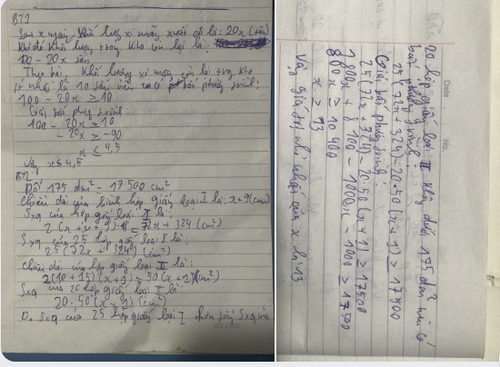 BT1
Sau x ngày khối lượng xi măng xuất đi là: 20x (tấn)
Khi đó khối lượng trong kho còn lại là:
100 - 20x tấn
Theo bài, khối lượng xi măng còn lại trong kho
ít nhất là 10 tấn nên ta có bất phương trình:
100 - 20x ≥ 10
Giải bất phương trình:
100 - 20x ≥ 10
- 20x ≥ -90
x ≤ 4,5
Vậy x ≤ 4,5
BT2
Đổi 175 dm² = 17 500 cm²
Chiều dài của hình hộp giấy loại I là: x+9(cm)
Sxq của hộp giấy loại I là:
2(x+x+9).18 = 72x + 324 (cm²)
Sxq của 25 hộp giấy loại I là:
25(72x + 324) (cm²)
Chiều dài của hộp giấy loại II là:
2(10+15)(x+9) = 50(x+9)(cm²)
Sxq của 20 hộp giấy loại II là:
20.50(x+9)(cm²)
Do Sxq của 25 hộp giấy loại I lớn Sxq của
20 hộp giấy loại II 175 dm² nên có
bất phương trình:
25(72x+324)-20.50(x+9) ≥ 17500
Giải bất phương trình:
25(72x+324)-20.50(x+9) ≥ 17500
1800x + 8100 - 1000x - 9000 ≥ 17500
800x ≥
x ≥ 13
Vậy giá trị nhỏ nhất của x là 13